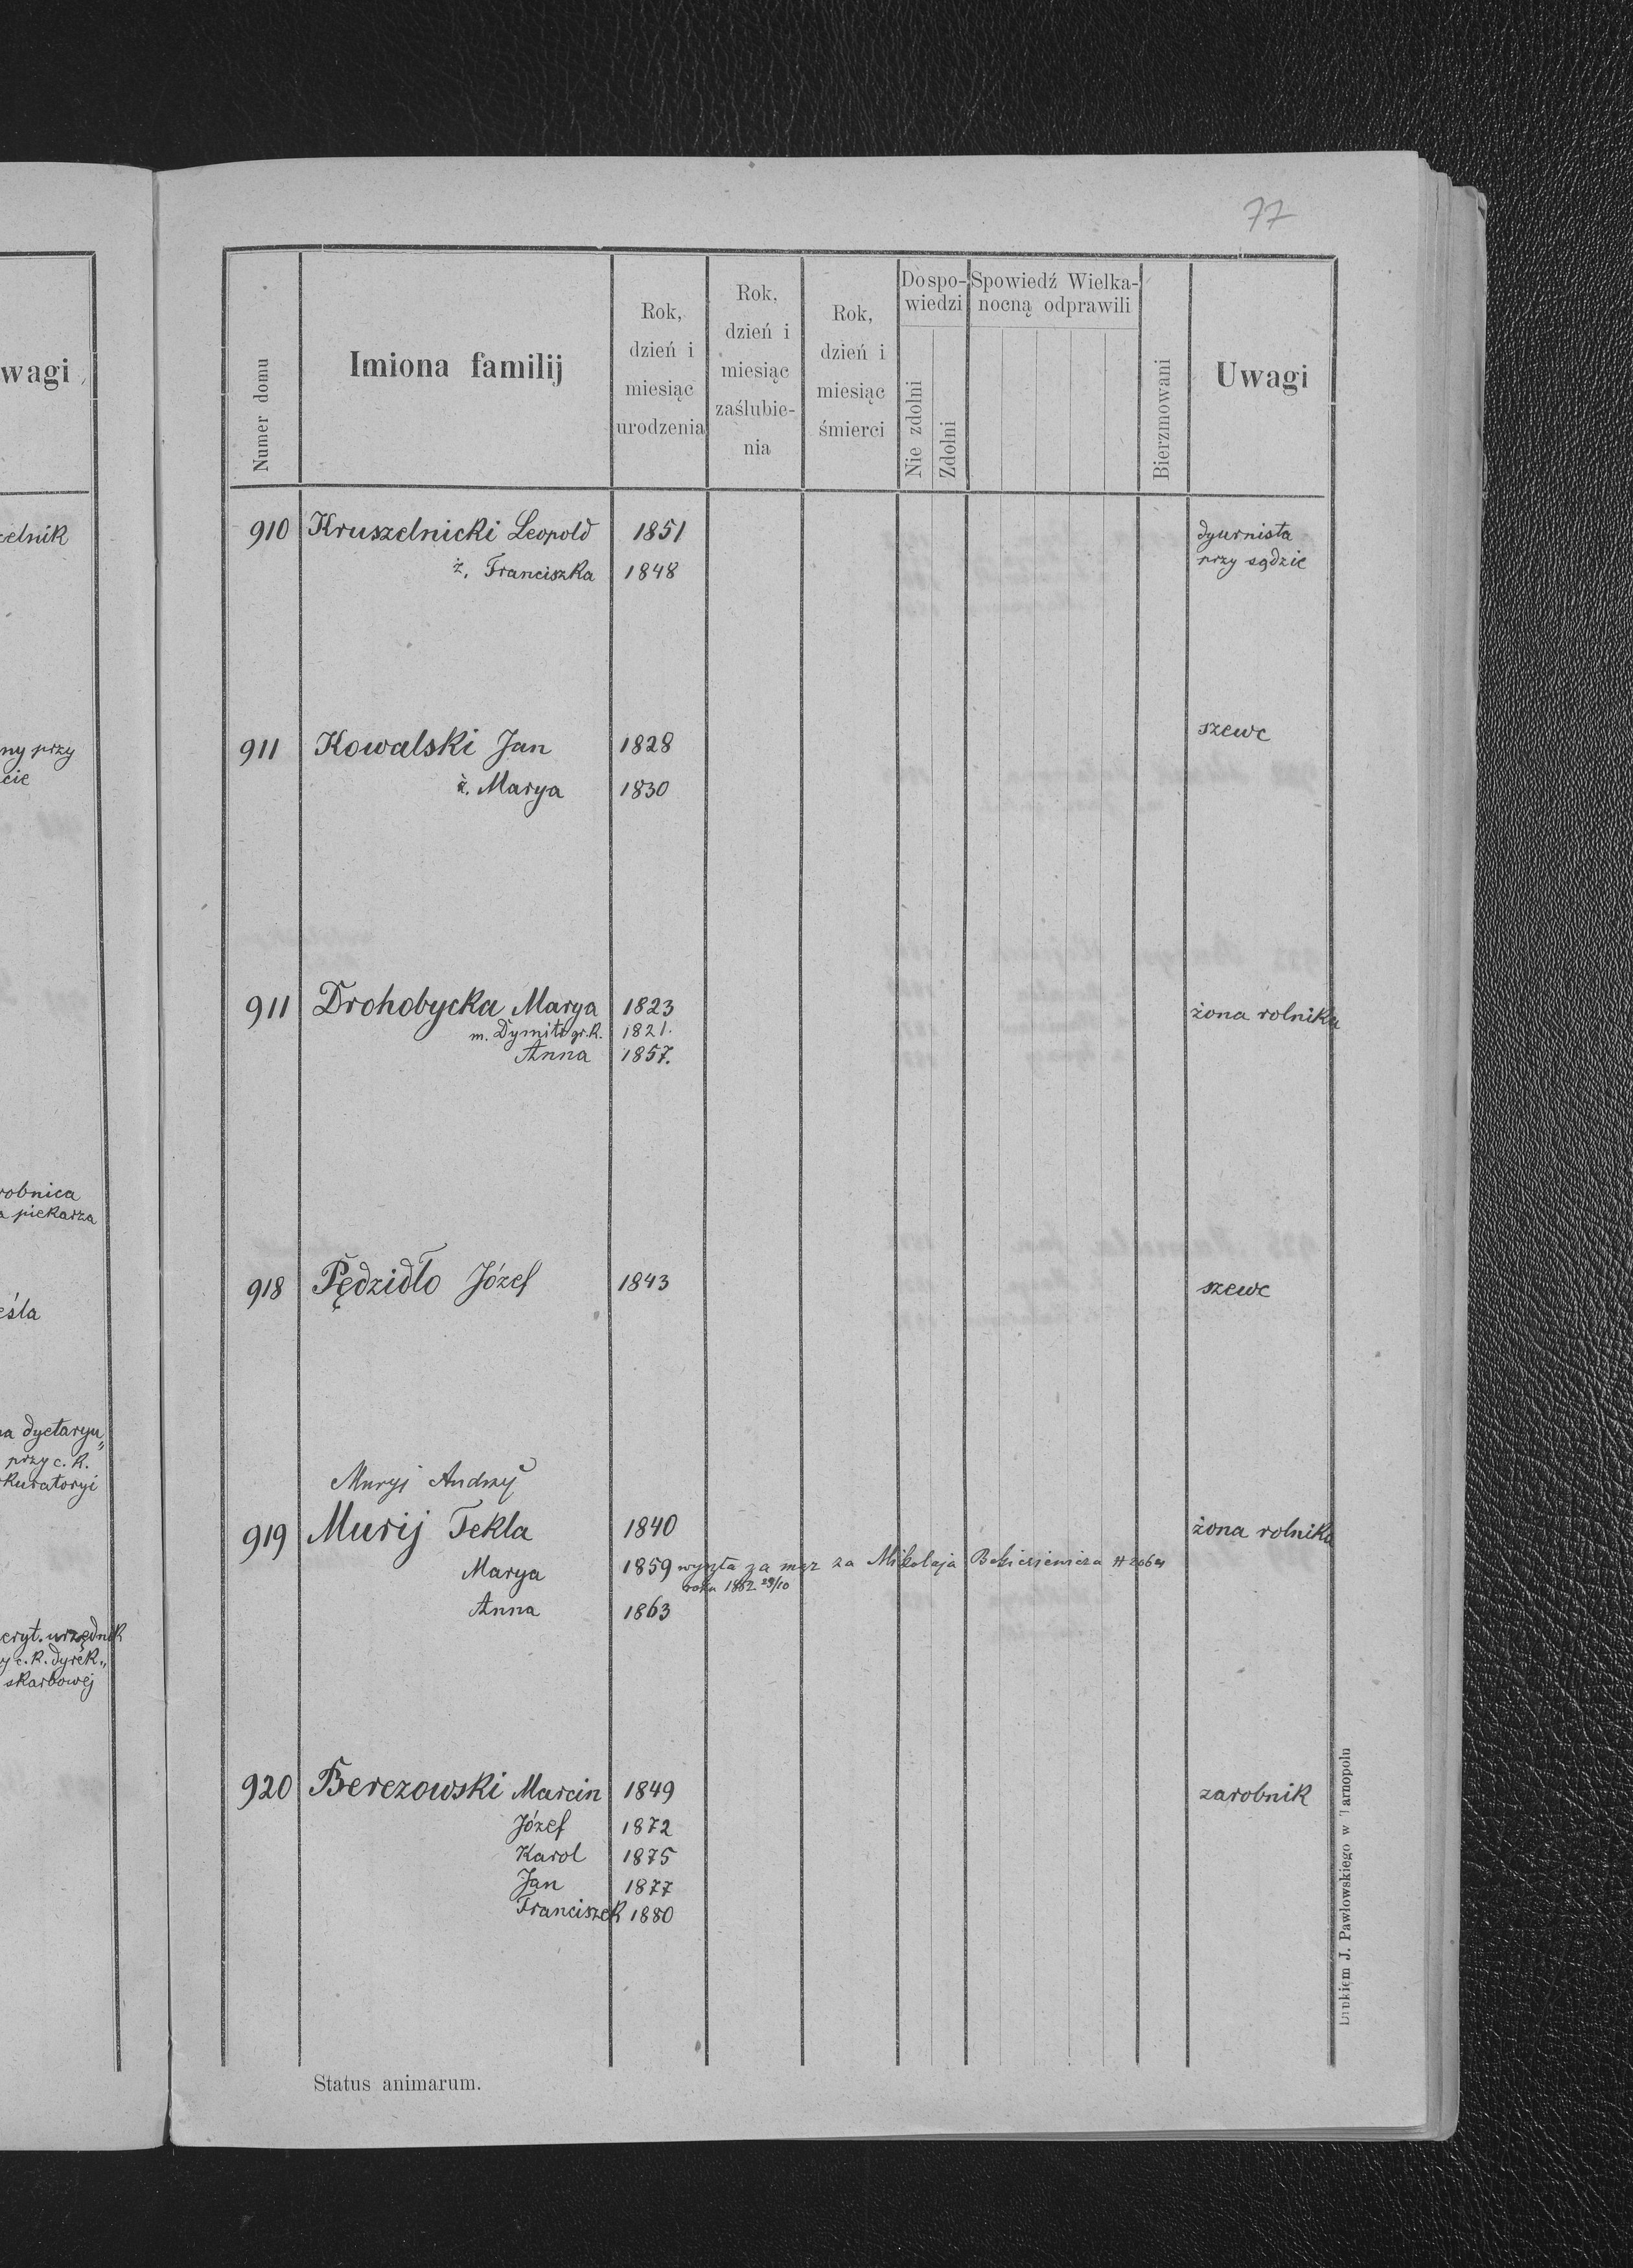 77
wagi
Numer domu
Imiona familij
Rok,
dzień i
miesiąc
urodzenia
Rok,
dzień i
miesiąc
zaślubie-
nia
Rok,
dzień i
miesiąc
śmierci
Do spo-
wiedzi
Nie zdolni
Zdolni
Spowiedź Wielka-
nocną odprawili
Bierzmowani
Uwagi
910 Kruszelnicki Leopold 1851 dyurnista
ż. Franciszka 1848 przy sądzie
911 Kowalski Jan 1828 szewc
ż. Marya 1830
911 Drohobycka Marya 1823 żona rolnika
m. Dymitr gr. k. 1821.
Anna 1857.
918 Pędzidło Józef 1843 szewc
Muryj Andrzij
919 Murij Tekla 1840 żona rolnika
Marya 1859 wyszła za mąż za Mikołaja
roku 1882 29/10
Anna 1863
920 Berezowski Marcin 1849 zarobnik
Józef 1872
Karol 1875
Jan 1877
Franciszek 1880
Status animarum.
Drukiem J. Pawłowskiego w Tarnopolu
elnik
ny przy
cie
robnica
a piekarza
eśla
a dyetaryu„
przy c. k.
kuratoryi
eryt. urzędnik
y c. k. dyrek„
skarbowej